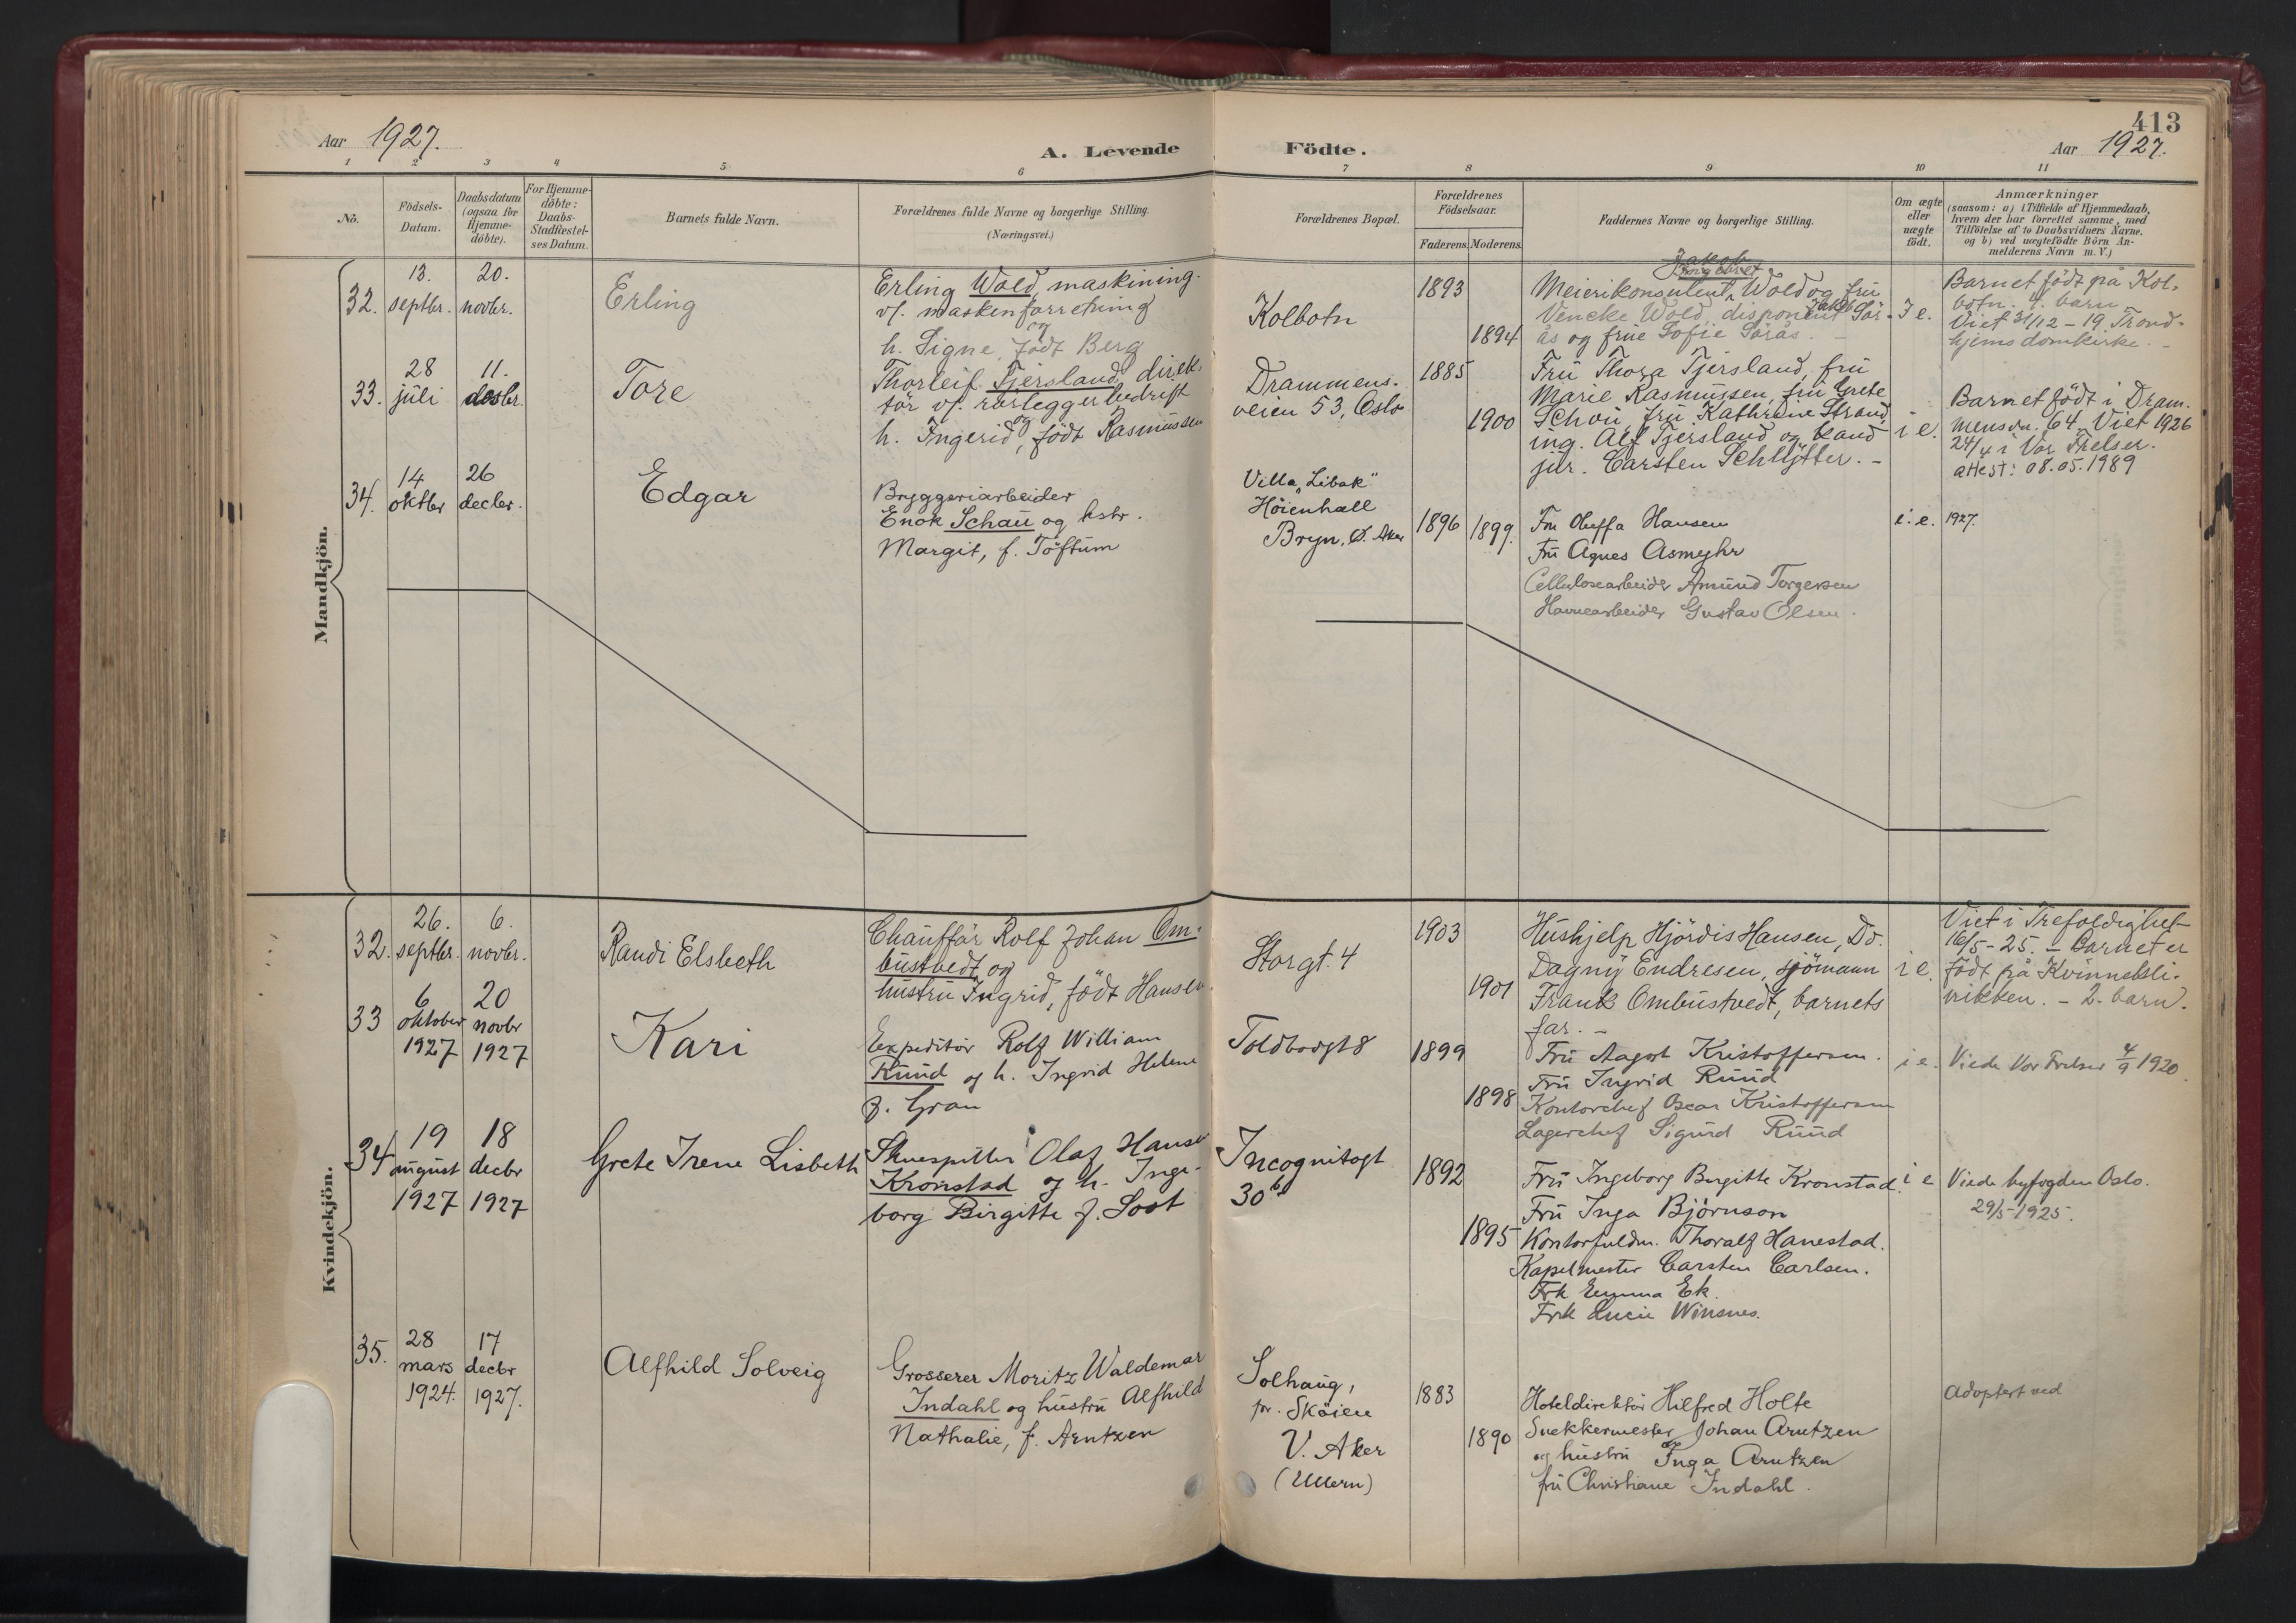 413
Aar 1927.
A. Levende Födte.
Aar 1927.
1 2 3 4 5 6 7 8 9 10 11
No.
Födsels-
Datum.
Daabsdatum
(ogsaa for
Hjemme-
döbte).
For Hjemme-
döbte:
Daabs-
Stadfæstel-
ses Datum.
Barnets fulde Navn.
Forældrenes fulde Navne og borgerlige Stilling.
(Næringsvei.)
Forældrenes Bopæl.
Forældrenes
Födselsaar.
Faderens. Moderens.
Faddernes Navne og borgerlige Stilling.
Om ægte
eller
uægte
födt.
Anmærkninger
(saasom: a) i Tilfælde af Hjemmedaab,
hvem der har forrettet samme, med
Tilföielse af to Daabsvidners Navne,
og b) ved uægtefödte Börn An-
melderens Navn m. V.)
Mandkjön.
32.
13.
septbr.
20.
novbr.
Erling
Erling Wold, maskining.
v/. maskinforretning
og
h. Signe, födt Berg
Kolbotn
1893
1894
Jakob
Meierikonsulent Wold og fru
Vencke Wold, disponent Jakob Sör-
ås og frue Sofie Sörås. -
I e.
Barnet födt på Kol-
botn. 4. barn
Viet 31/12 - 19 Trond-
hjems domkirke. -
33.
28
juli
11.
desbr.
Tore
Thorleif Tjersland, direk-
tör v/. rörleggerbedrift
og
h. Ingerid, födt Rasmussen
Drammens-
veien 53, Oslo
1885
1900
Fru Thora Tjersland, fru
Marie Rasmussen, fru Grete
Schou, fru Kathrine Strand,
ing. Alf Tjersland og kand
jur. Carsten Schlytter. -
i e.
Barnet födt i Dram-
mensvn. 64. Viet 1926
24/4 i Vor Frelser.
attest: 08.05.1989
34.
14
oktbr
26
decbr.
Edgar
Bryggeriarbeider
Enok Schau og hstr.
Margit, f. Töftum
Villa "Libak"
Höienhall
Bryn, Ö. Aker
1896
1899.
Fru Oluffa Hansen
Fru Agnes Asmyhr
Cellulosearbeider Amund Torgersen
Havnearbeider Gustav Olsen.
i. e.
1927.
Kvindekjön.
32.
26.
septbr.
6.
novbr.
Randi Elsbeth
Chaufför Rolf Johan Om-
bustvedt og
hustru Ingrid, födt Hansen
Storgt. 4
1903
1901
Hushjelp Hjördis Hansen, Do.
Dagny Endresen, sjömann
Frank Ombustvedt, barnets
far. -
i e.
Viet i Trefoldighet
16/5 - 25. - Barnet er
födt på Kvinnekli-
nikken. - 2. barn.
33
6
oktober
1927
20
novbr
1927
Kari
Expeditör Rolf William
Ruud og h. Ingrid Helene
f. Gran
Toldbodgt 8
1899
1898
Fru Aagot Kristoffersen.
Fru Ingrid Ruud
Kontorchef Oscar Kristoffersen
Lagerchef Sigurd Ruud
i e.
Viede Vor Frelser 4/9 1920.
34
19
august
1927
18
decbr
1927
Grete Irene Lisbeth
Skuespiller Olaf Hansen
Kronstad og h. Inge-
borg Birgitte f. Soot
Incognitogt
30 b
1892
1895
Fru Ingeborg Birgitte Kronstad.
Fru Inga Björnson
Kontorfuldm. Thoralf Hanestad.
Kapelmester Carsten Carlsen.
Frk Emma Ek.
Frk Lucie Winsnes.
i e
Viede byfogden Oslo.
29/5-1925.
35.
28
mars
1924.
17
decbr
1927.
Alfhild Solveig
Grosserer Moritz Waldemar
Indahl og hustru Alfhild
Nathalie, f. Arntzen
Solhaug,
pr. Sköien
V. Aker
(Ullern)
1883
1890
Hoteldirektör Hilfred Holte
Snekkermester Johan Arntzen
og hustru Inga Arntzen
fru Christiane Indahl.
Adoptert ved